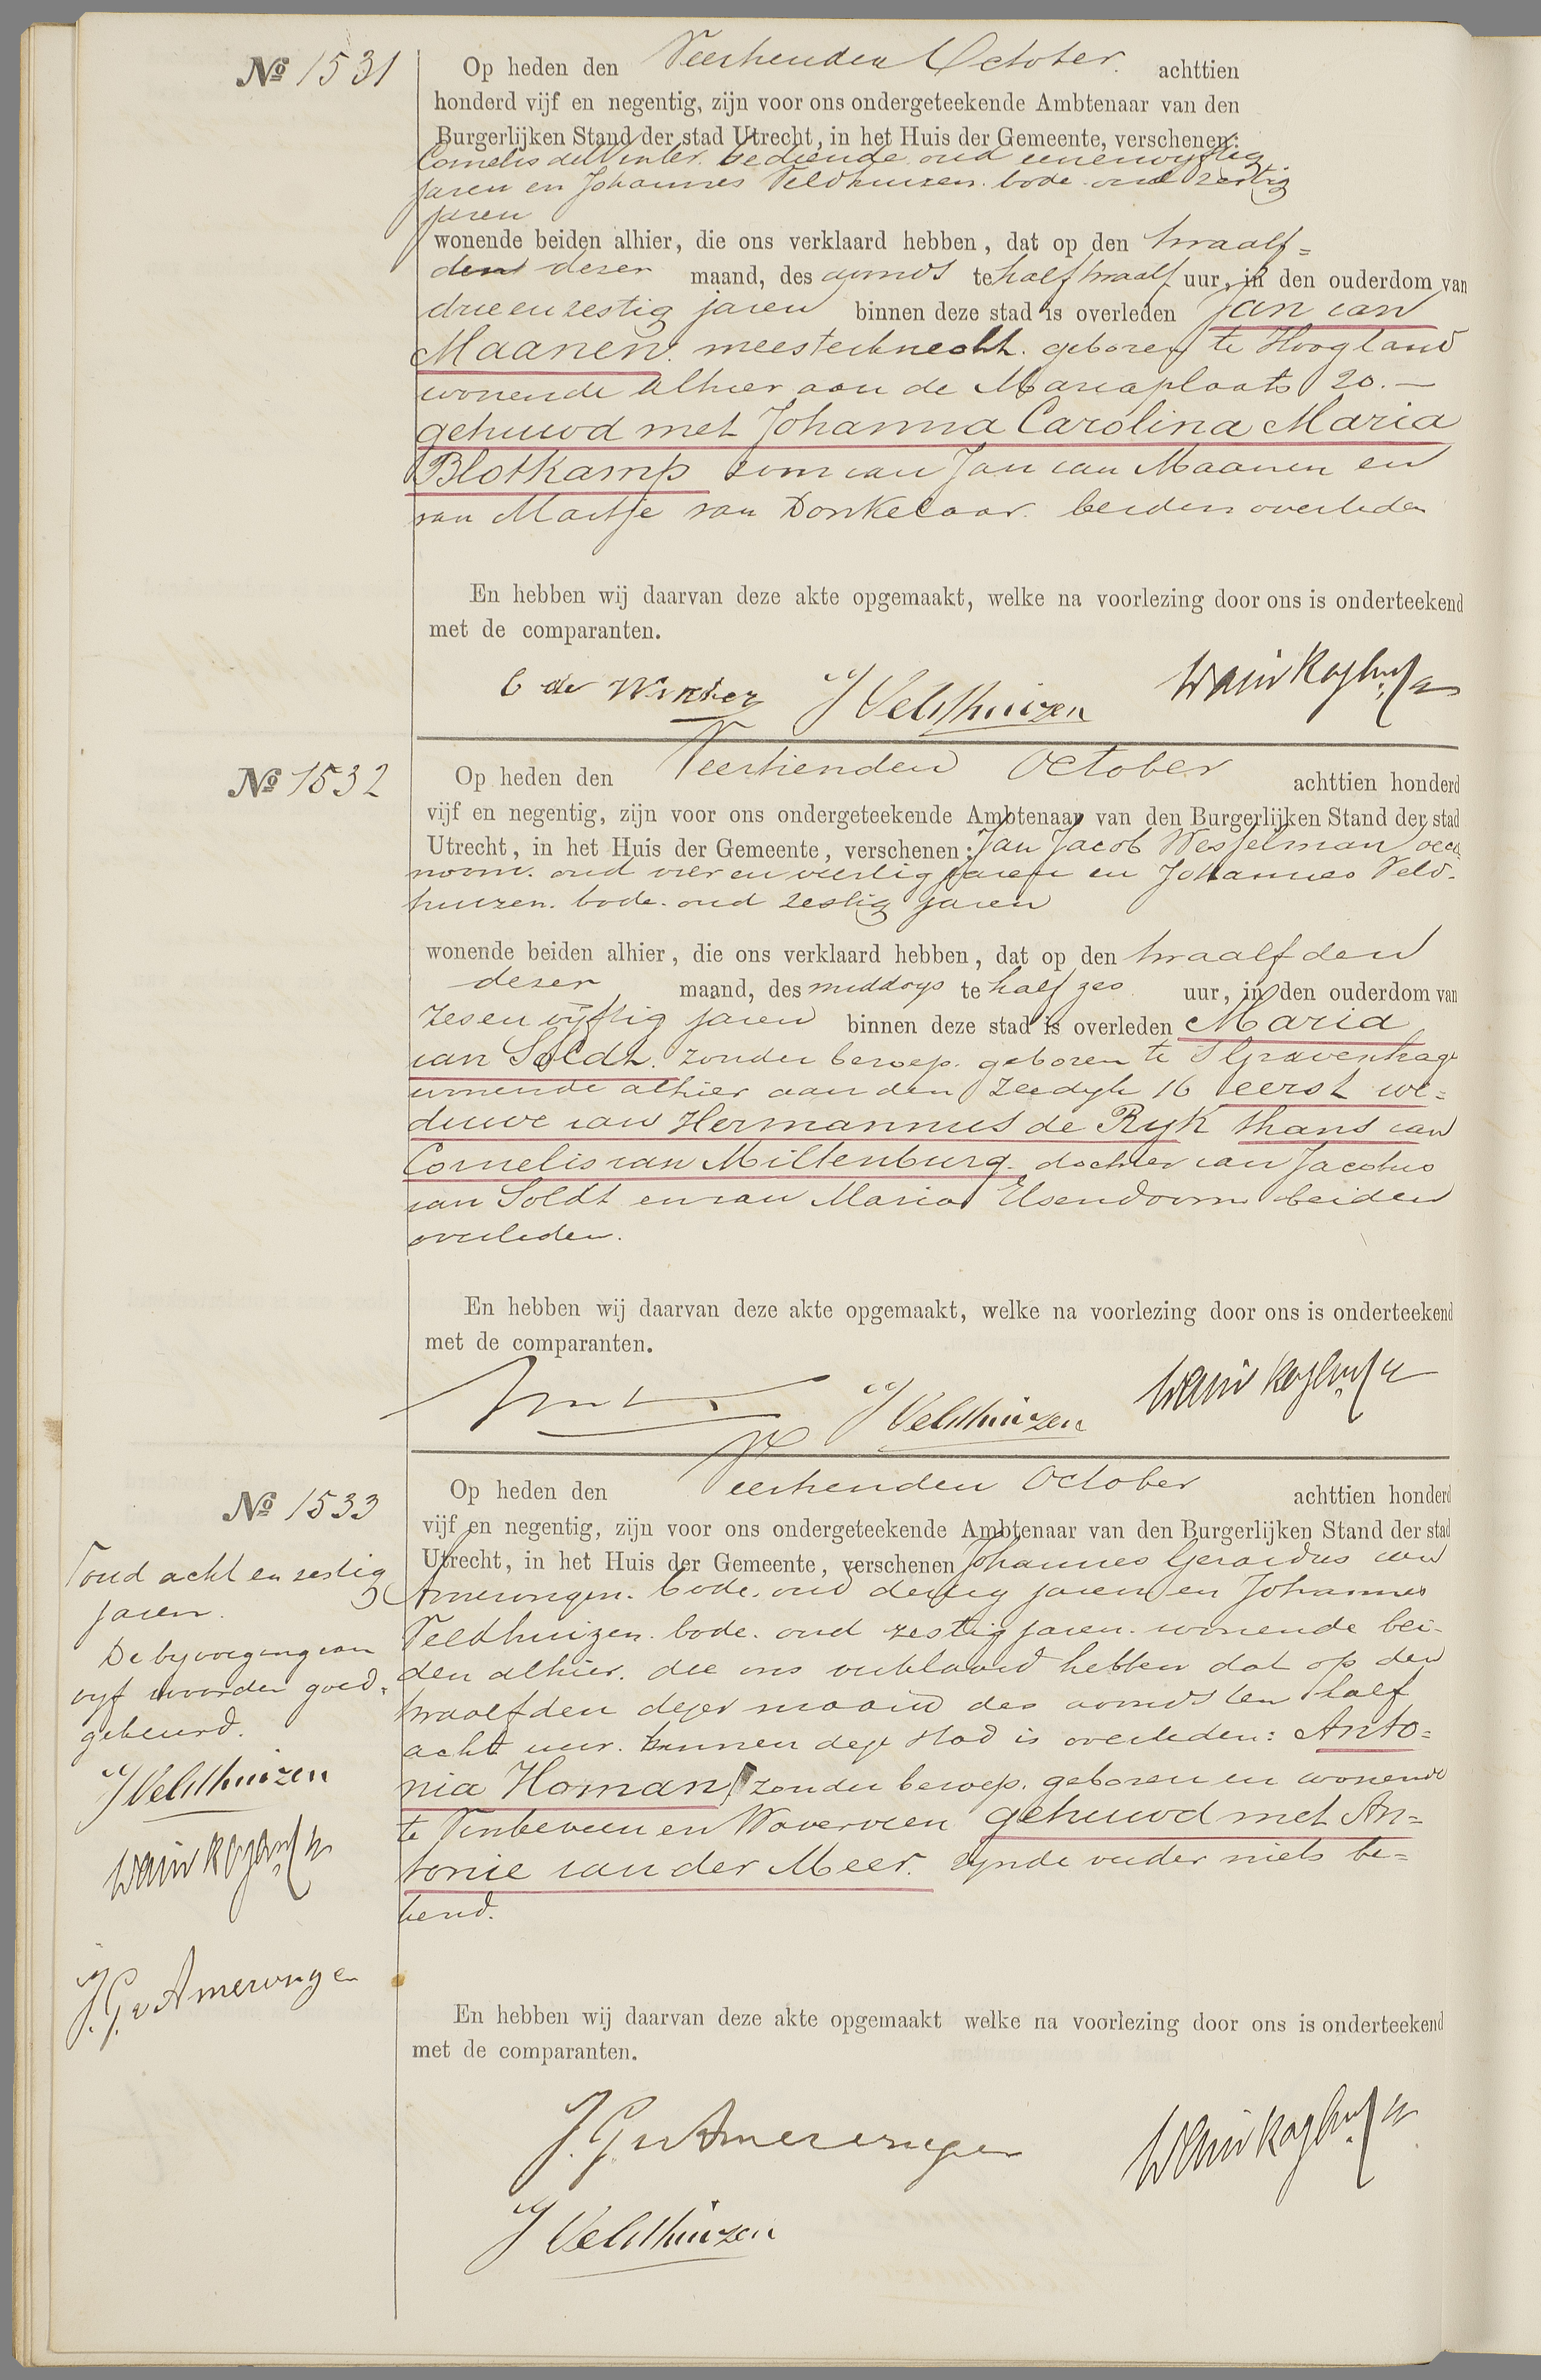 № 1531
Op heden den Veertienden October. achttien
honderd vijf en negentig, zijn voor ons ondergeteekende Ambtenaar van den
Burgerlijken Stand der stad Utrecht, in het Huis der Gemeente, verschenen:
Cornelis de Winter. bediende oud eenenvyftig
jaren en Johannes Veldhuizen. bode oud zestig
jaren
wonende beiden alhier, die ons verklaard hebben, dat op den twaalf=
den dezer maand, des avonds te half twaalf uur, in den ouderdom van
drieenzestig jaren binnen deze stad is overleden Jan van
Maanen. meesterknecht. geboren te Hoogland
wonende alhier aan de Mariaplaats 20. —
gehuwd met Johanna Carolina Maria
Blotkamp zoon van Jan van Maanen en
van Maitje van Donkelaar. beiden overleden
En hebben wij daarvan deze akte opgemaakt, welke na voorlezing door ons is onderteekend
met de comparanten.
C de Winter J Veldhuizen
№ 1532
Op heden den Veertienden October achttien honderd
vijf en negentig, zijn voor ons ondergeteekende Ambtenaar van den Burgerlijken Stand der stad
Utrecht, in het Huis der Gemeente, verschenen: Jan Jacob Wesselman oeco
noom. oud vier en veertig jaren en Johannes Veld-
huizen. bode. oud zestig jaren
wonende beiden alhier, die ons verklaard hebben, dat op den twaalfden
dezer maand, des middags te half zes uur, in den ouderdom van
zesenvyftig jaren binnen deze stad is overleden Maria
van Soldt. zonder beroep. geboren te 'S Gravenhage
wonende alhier aan den Zeedyk 16 eerst we=
duwe van Hermannus de Ryk thans van
Cornelis van Miltenburg. dochter van Jacobus
van Soldt en van Maria Elsendoorn beiden
overleden.
En hebben wij daarvan deze akte opgemaakt, welke na voorlezing door ons is onderteekend
met de comparanten.
J Veldhuizen
№ 1533
Op heden den Veertienden October achttien honderd
vijf en negentig, zijn voor ons ondergeteekende Ambtenaar van den Burgerlijken Stand der stad
Utrecht, in het Huis der Gemeente, verschenen Johannes Gerardus van
Amerongen. bode. oud dertig jaren en Johannes
Veldhuizen. bode. oud zestig jaren. wonende bei-
den alhier. die ons verklaard hebben dat op den
twaalfden dezer maand des avonds ten half
acht uur. binnen deze stad is overleden: Anto=
nia Homan, zonder beroep. geboren en wonende
te Vinkeveen en Waverveen gehuwd met An=
tonie van der Meer. zynde verder niets be=
kend.
oud acht en zestig
jaren.
De byvoeging van
vyf woorden goed=
gekeurd.
J Veldhuizen
J. G. v Amerongen
En hebben wij daarvan deze akte opgemaakt welke na voorlezing door ons is onderteekend
met de comparanten.
J. G. v Amerongen
J Veldhuizen